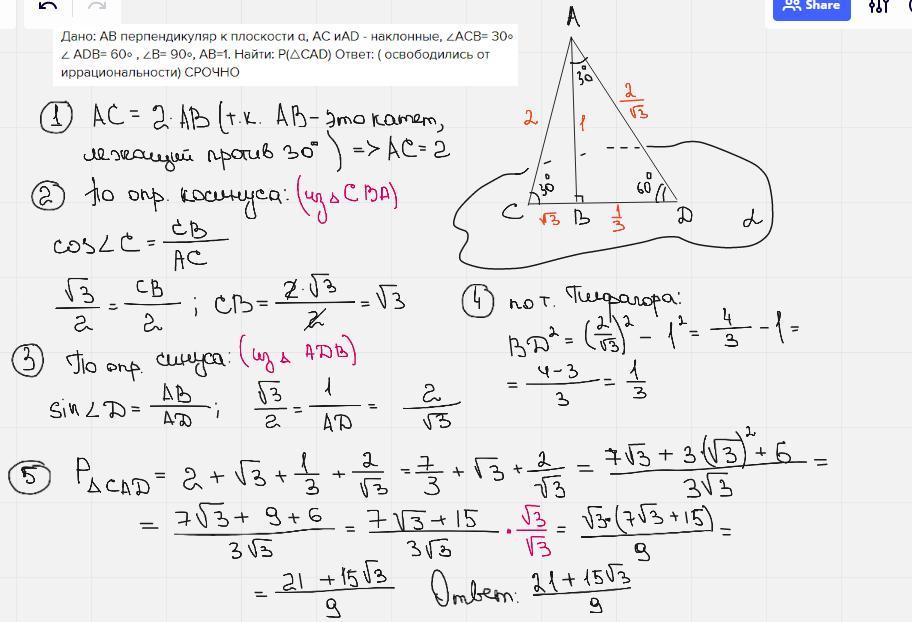 Share
Дано: АВ перпендикуляр к плоскости α, АС иAD - наклонные, ∠ACB= 30०
∠ ADB= 60० , ∠B= 90०, AB=1. Найти: P(△CAD) Ответ: ( освободились от
иррациональности) СРОЧНО
A
30°
2
1
2/√3
30°
60°
C √3 B 1/3 D α
① AC = 2·AB (т.к. AB - это катет,
лежащий против 30°) => AC = 2
② По опр. косинуса: (из △CBA)
cos∠C = CB/AC
√3/2 = CB/2 ; CB = 2·√3/2 = √3
③ По опр. синуса: (из △ ADB)
sin∠D = AB/AD ; √3/2 = 1/AD = 2/√3
④ по т. Пифагора:
BD² = (2/√3)² - 1² = 4/3 - 1 =
= 4-3/3 = 1/3
⑤ P△CAD = 2 + √3 + 1/3 + 2/√3 = 7/3 + √3 + 2/√3 = 7√3 + 3·(√3)² + 6/3√3 =
= 7√3 + 9 + 6/3√3 = 7√3 + 15/3√3 · √3/√3 = √3·(7√3 + 15)/9 =
= 21 + 15√3/9 Ответ: 21 + 15√3/9